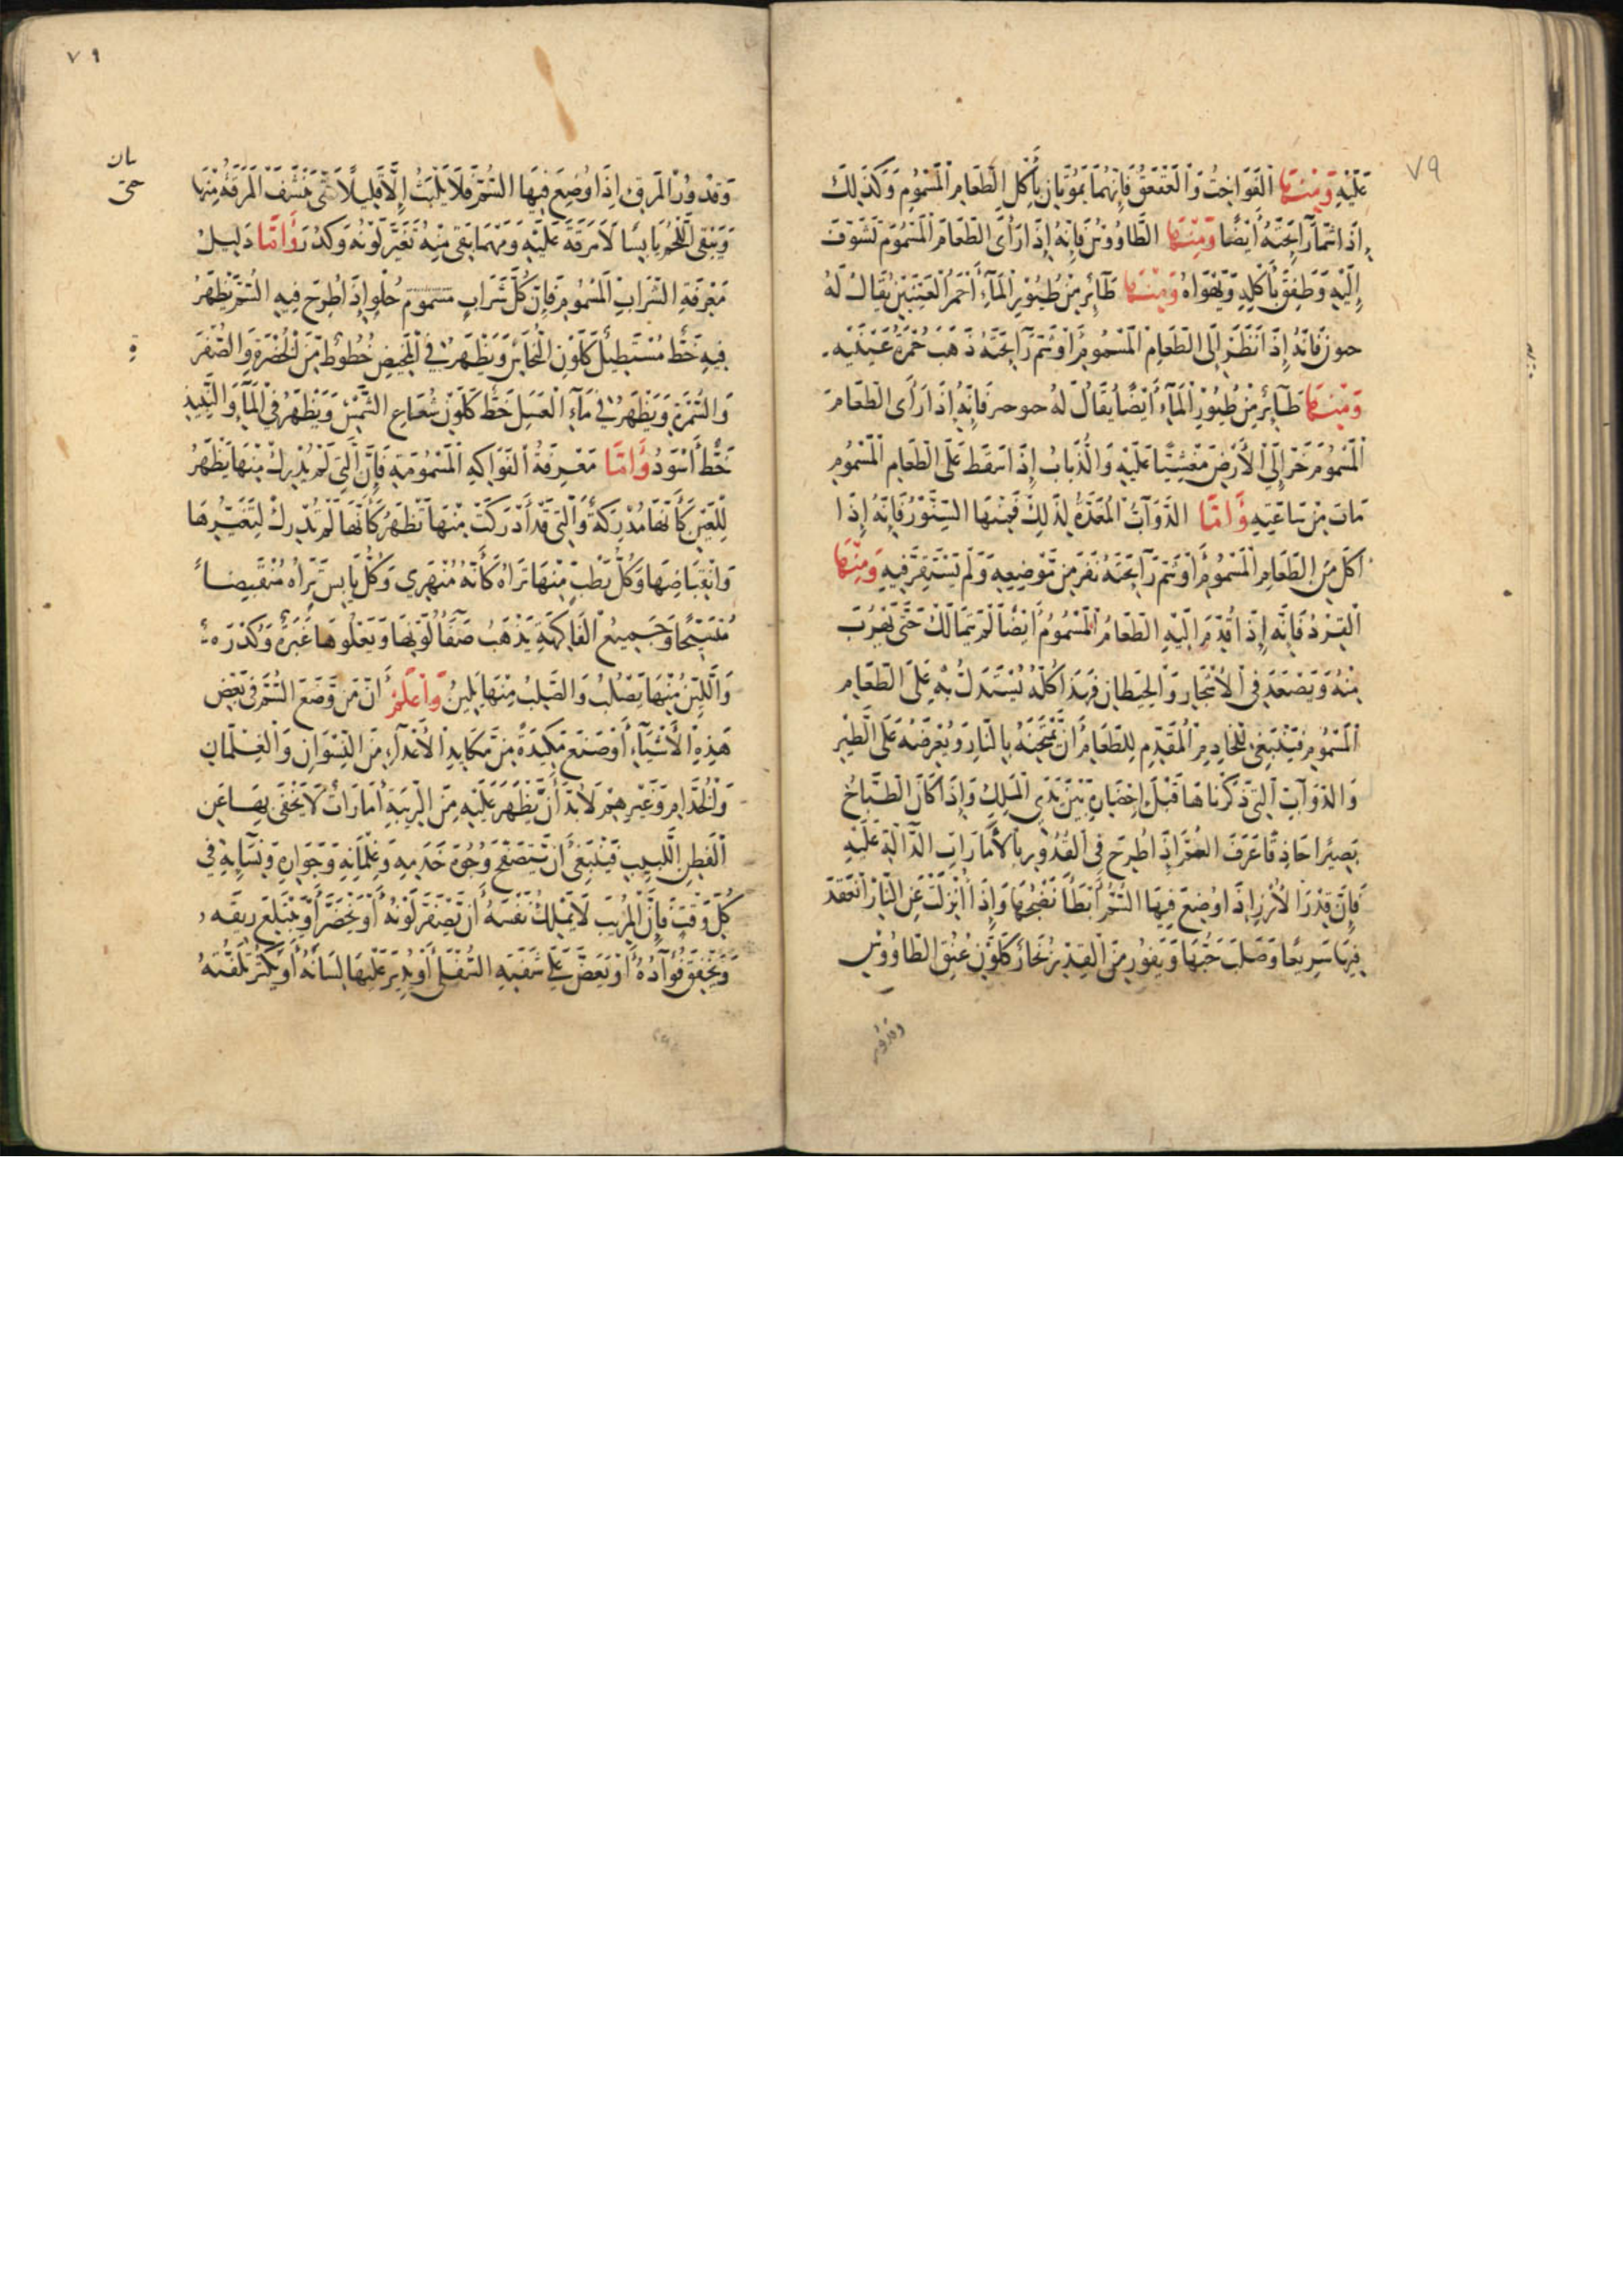 ٧٩
عَلَيْهِ وَمِنْهَا الْفَوَاخِتُ وَالْعَقْعَقُ فَإِنَّهُمَا يَمُوتَانِ بِأَكْلِ الطَّعَامِ الْمَسْمُومِ وَكَذَلِكَ
إِذَا شَمَّا رَآئِحَتَهُ أَيْضًا وَمِنْهَا الطَّاوُوسُ فَإِنَّهُ إِذَا رَأَى الطَّعَامَ الْمَسْمُومَ تَشَوَّفَ
إِلَيْهِ وَطَفِقَ بِأَكْلِهِ وَيَهْوَاهُ وَمِنْهَا طَآئِرٌ مِنْ طُيُورِ الْمَآءِ أَحْمَرُ الْعَيْنَيْنِ يُقَالُ لَهُ
حوز فَإِنَّهُ إِذَا نَظَرَ إِلَى الطَّعَامِ الْمَسْمُومِ أَوْ شَمَّ رَآئِحَتَهُ ذَهَبَ حُمْرَةُ عَيْنَيْهِ
وَمِنْهَا طَآئِرٌ مِنْ طُيُورِ الْمَآءِ أَيْضًا يُقَالُ لَهُ فَإِنَّهُ إِذَا رَأَى الطَّعَامَ
الْمَسْمُومَ خَرَّ إِلَى الْأَرْضِ مَغْشِيًّا عَلَيْهِ وَالذُّبَابُ إِذَا سَقَطَ عَلَى الطَّعَامِ الْمَسْمُومِ
مَاتَ مِنْ سَاعَتِهِ وَأَمَّا الدَّوَآبُّ الْمُعَدَّةُ لِذَلِكَ فَمِنْهَا السِّنَّوْرُ فَإِنَّهُ إِذَا
أَكَلَ مِنَ الطَّعَامِ الْمَسْمُومِ أَوْ شَمَّ رَآئِحَتَهُ نَفَرَ مِنْ مَوْضِعِهِ وَلَمْ يَسْتَقِرَّ فِيهِ وَمِنْهَا
الْقِرْدُ فَإِنَّهُ إِذَا قُدِّمَ إِلَيْهِ الطَّعَامُ الْمَسْمُومُ أَيْضًا لَمْ يَتَمَالَكْ حَتَّى يَهْرُبَ
مِنْهُ وَيَصْعَدَ فِي الْأَشْجَارِ وَالْحِيطَانِ فَهَذَا كُلُّهُ يُسْتَدَلُّ بِهِ عَلَى الطَّعَامِ
الْمَسْمُومِ فَيَنْبَغِي لِلْخَادِمِ الْمُقَدِّمِ لِلطَّعَامِ أَنْ يَمْتَحِنَهُ بِالنَّارِ وَيُعْرِضَهُ عَلَى الطَّيْرِ
وَالدَّوَآبِّ الَّتِي ذَكَرْنَاهَا قَبْلَ إِحْضَارِهِ بَيْنَ يَدَيِ الْمَلِكِ وَإِذَا كَانَ الطَّبَّاخُ
بَصِيرًا حَاذِقًا عَرَفَ السُّمَّ إِذَا طُرِحَ فِي الْقُدُورِ بِالْأَمَارَاتِ الدَّآلَّةِ عَلَيْهِ
فَإِنَّ قِدْرَ الْأَرُزِّ إِذَا وُضِعَ فِيهَا السُّمُّ أَبْطَأَ نُضْجُهَا وَإِذَا أُنْزِلَتْ عَنِ النَّارِ انْعَقَدَ
فِيهَا سَرِيعًا وَصَلُبَ حَبُّهَا وَيَفُورُ مِنَ الْقِدْرِ بُخَارٌ كَلَوْنِ عُنُقِ الطَّاوُوسِ
وقدور
٧٩
وَقُدُورُ الْمَرَقِ إِذَا وُضِعَ فِيهَا السُّمُّ فَلَا يَلْبَثُ إِلَّا قَلِيلًا حَتَّى تَنْشَفَ الْمَرَقَةُ مِنْهَا
وَيَبْقَى اللَّحْمُ يَابِسًا لَا مَرَقَةَ عَلَيْهِ وَمَهْمَا بَقِيَ مِنْهُ تَغَيَّرَ لَوْنُهُ وَكَدُرَ وَأَمَّا دَلِيلُ
مَعْرِفَةِ الشَّرَابِ الْمَسْمُومِ فَإِنَّ كُلَّ شَرَابٍ مسموم حُلْوٍ إِذَا طُرِحَ فِيهِ السُّمُّ يَظْهَرُ
فِيهِ خَطٌّ مُسْتَطِيلٌ كَلَوْنِ النُّحَاسِ وَيَظْهَرُ فِي الْمَخِيضِ خُطُوطٌ مِنَ الْخُضْرَةِ وَالصُّفْرَ
وَالسُّمْرَةِ وَيَظْهَرُ فِي مَآءِ الْعَسَلِ خَطٌّ كَلَوْنِ شُعَاعِ الشَّمْسِ وَيَظْهَرُ فِي الْمَآءِ وَالنَّبِيذِ
خَطٌّ أَسْوَدُ وَأَمَّا مَعْرِفَةُ الْفَوَاكِهِ الْمَسْمُومَةِ فَإِنَّ الَّتِي لَمْ يُدْرِكْ مِنْهَا يَظْهَرُ
لِلْعَيْنِ كَأَنَّهَا مُدْرِكَةٌ وَالَّتِي قَدْ أَدْرَكَتْ مِنْهَا تَظْهَرُ كَأَنَّهَا لَمْ تُدْرِكْ لِتَغَيُّرِهَا
وَانْقِبَاضِهَا وَكُلُّ رَطْبٍ مِنْهَا تَرَاهُ كَأَنَّهُ مُنْهَرِي وَكُلُّ يَابِسٍ تَرَاهُ مُنْقَبِضًا
مُتَشَنِّجًا وَجَمِيعُ الْفَاكِهَةِ يَذْهَبُ صَفَآءُ لَوْنِهَا وَيَعْلُوهَا غَبَرَةٌ وَكُدْرَه
وَاللَّيِّنُ مِنْهَا يَصْلُبُ وَالصُّلْبُ مِنْهَا يَلِينُ وَاعْلَمْ أَنَّ مَنْ وَضَعَ السُّمَّ فِي بَعْضِ
هَذِهِ الْأَشْيَآءِ أَوْ صَنَعَ مَكِيدَةً مِنْ مَكَايِدِ الْأَعْدَآءِ مِنَ النِّسْوَانِ وَالْغِلْمَانِ
وَالْخُدَّامِ وَغَيْرِهِمْ لَابُدَّ أَنْ يَظْهَرَ عَلَيْهِ مِنَ الرِّيبَةِ أَمَارَاتٌ لَا يَخْفَى بِهَا عَنِ
الْفَطِنِ اللَّبِيبِ فَيَنْبَغِي أَنْ يَتَصَفَّحَ وُجُوهَ خَدَمِهِ وَغِلْمَانِهِ وَجَوَارِهِ وَنِسَآئِهِ فِي
كُلِّ وَقْتٍ فَإِنَّ الْمُرِيبَ لَا يَمْلِكُ نَفْسَهُ أَنْ يَصْفَرَّ لَوْنُهُ أَوْ يَخْضَرَّ أَوْ يَبْتَلِعَ رِيقَه
وَيَخْفِقَ فُؤَآدُهُ أَوْ يَعَضَّ عَلَى شَفَتِهِ السُّفْلَى أَوْ يُدِيرَ عَلَيْهَا لِسَانَهُ أَوْ يَكْثُرَ تَلَفُّتُهُ
حتى
ة